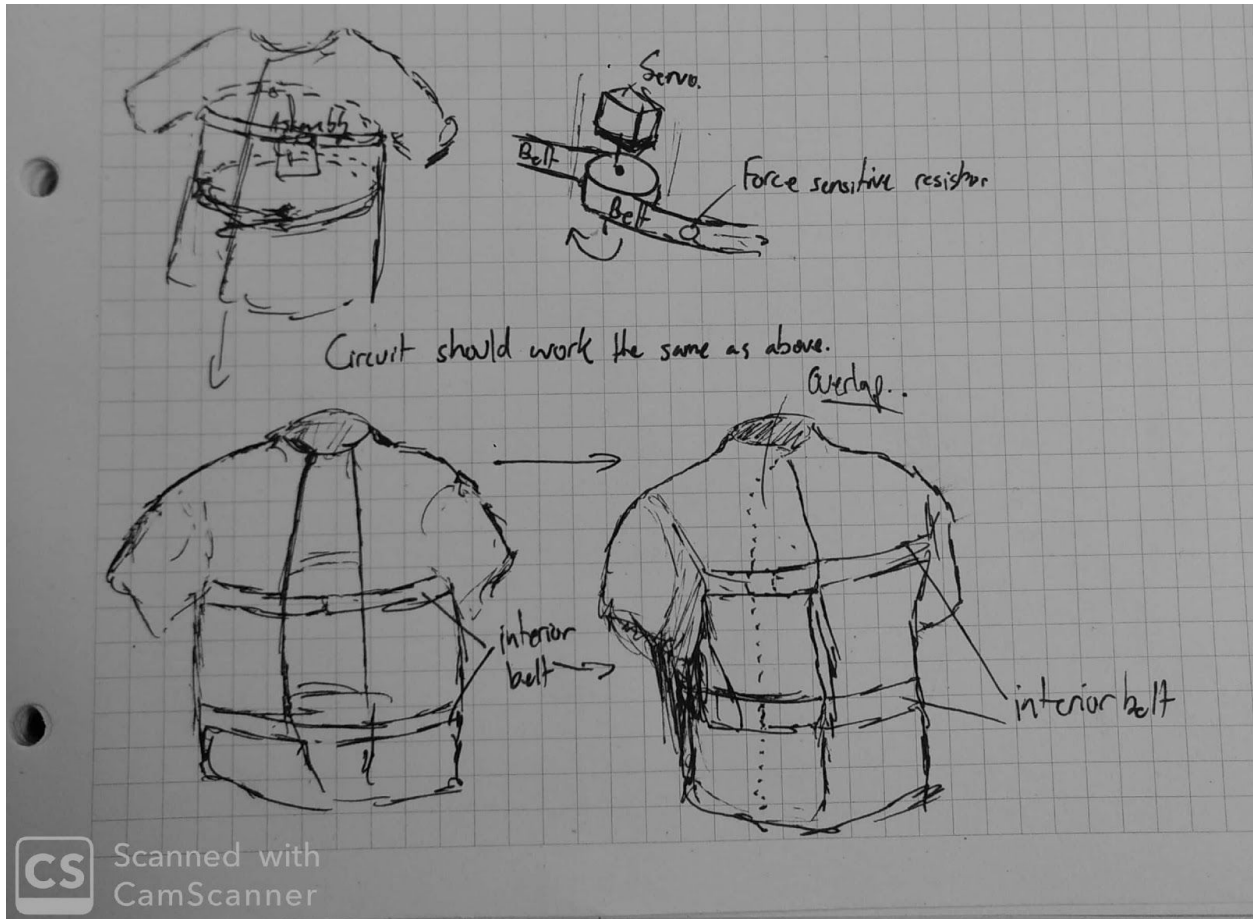 Servo.
Assembly
Belt
Force sensitive resistor
Belt
Circuit should work the same as above.
Overlap..
interior
belt
interior belt
CS
Scanned with
CamScanner